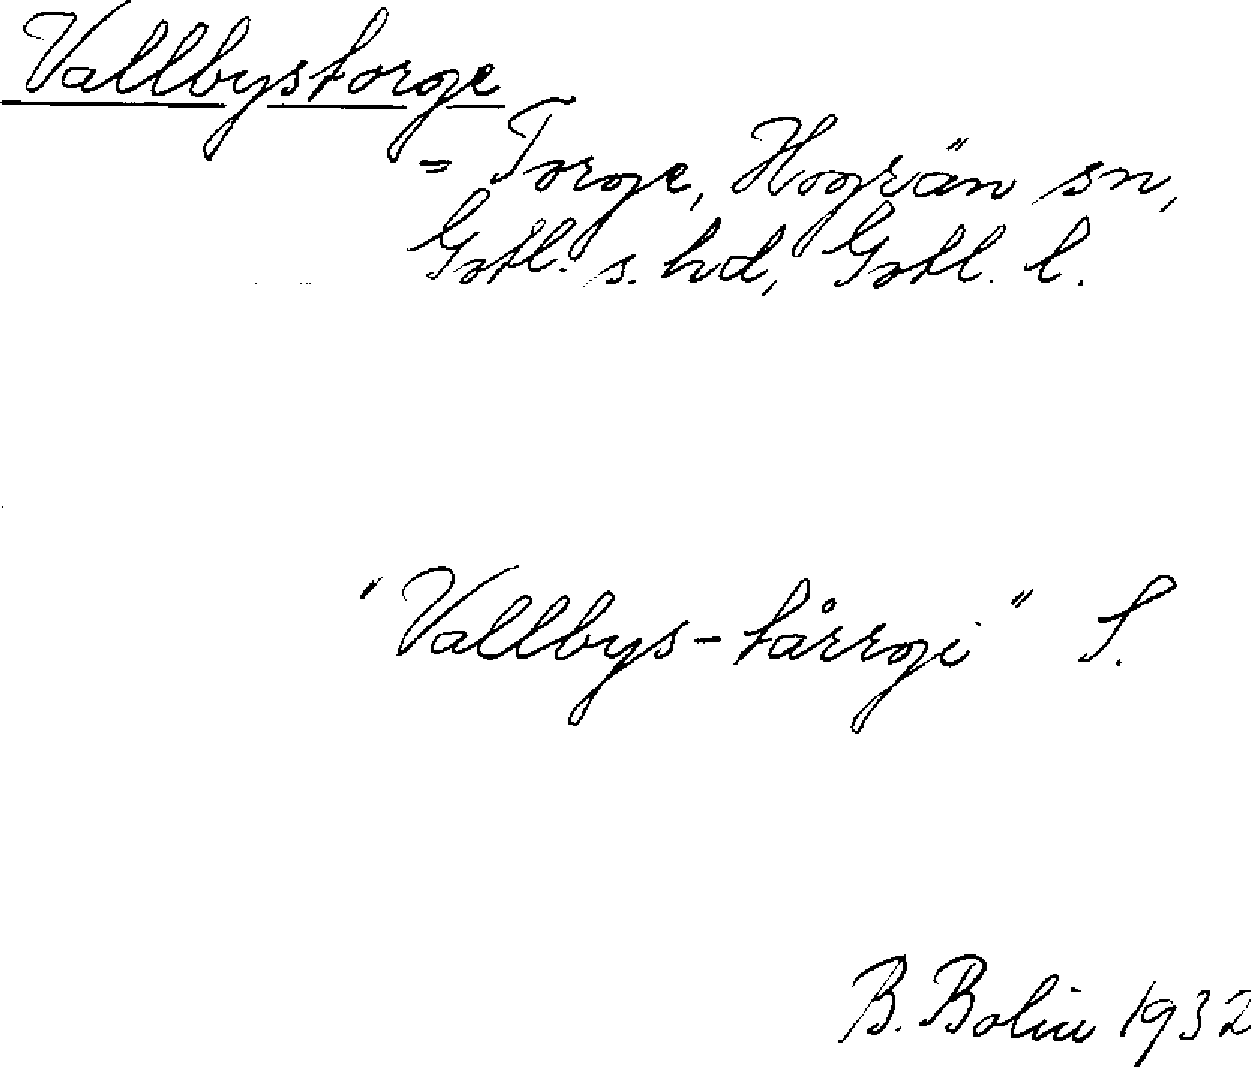 Vallbystorge
= Torge, Hogrän sn,
Gotl. s. hd, Gotl. l.
"Vallbys-tårrgi" S.
B. Bolin 1932